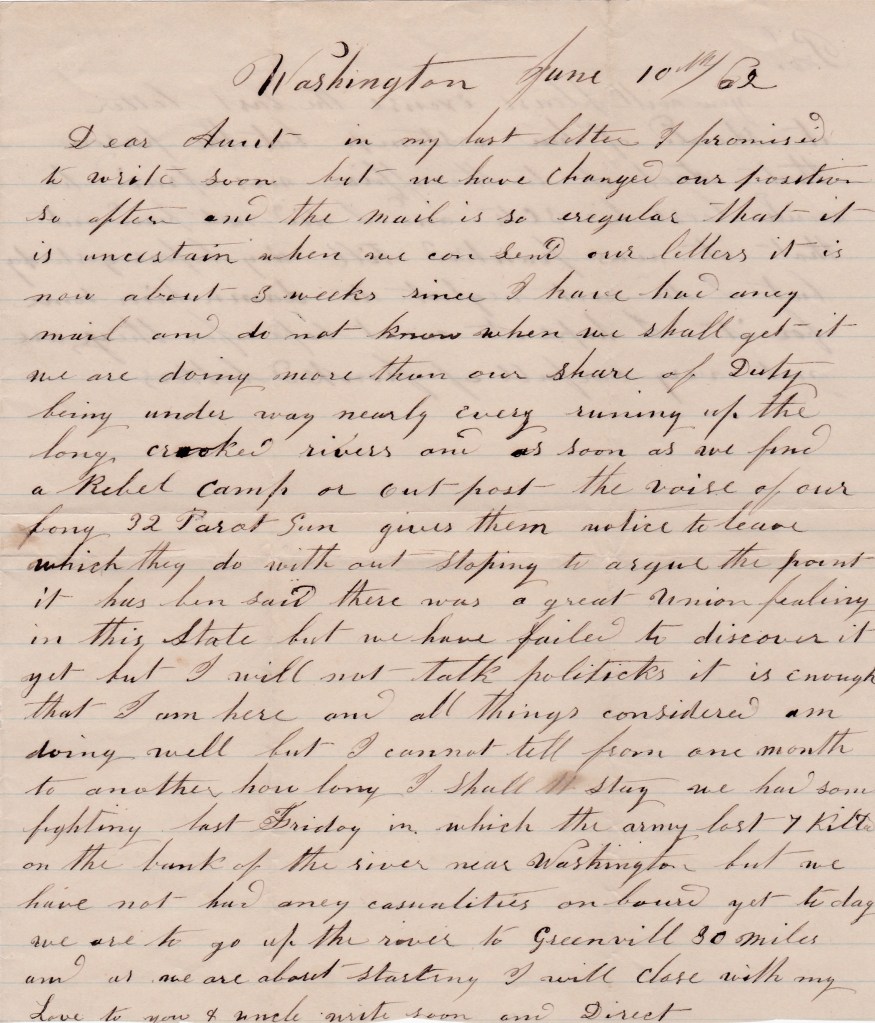 Washington June 10th/62
Dear Aunt in my last letter I promised
to write soon but we have changed our position
so often and the mail is so eregular that it
is uncertain when we can send our letters it is
now about 3 weeks since I have had aney
mail and do not know when we shall get it
we are doing more than our share of Duty
being under way nearly every runing up the
long crooked rivers and as soon as we find
a Rebel Camp or out post the voise of our
long 32 Parot Gun gives them notice to leave
which they do with out stoping to argue the point
it has ben said there was a great Union fealing
in this State but we have failed to discover it
yet but I will not talk politicks it is enough
that I am here and all things considered am
doing well but I cannot tell from one month
to another how long I shall stay we had som
fighting last Friday in which the army lost 7 Killd
on the bank of the river near Washington but we
have not had aney casualities on board yet to day
we are to go up the river to Greenvill 30 miles
and as we are about starting I will close with my
Love to you & uncle write soon and Direct